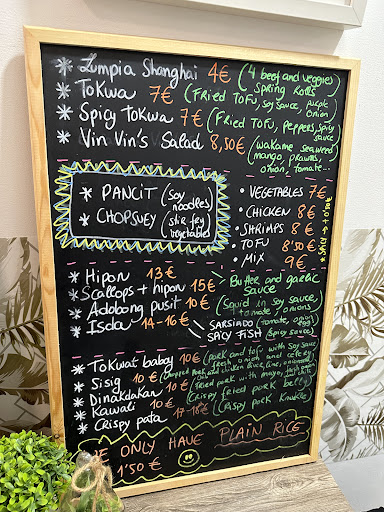 * Lumpia Shanghai 4€ (4 beef and veggies spring rolls)
* Tokwa 7€ (Fried Tofu, soy sauce, purple onion)
* Spicy tokwa 7€ (Fried Tofu, peppers, spicy sauce)
* Vin Vin's Salad 8,50€ (wakame seaweed, mango, prawns, onion, tomate...)
* PANCIT (soy noodles)
* CHOPSUEY (stir fry vegetables)
• VEGETABLES 7€
• CHICKEN 8€
• SHRIMPS 8€
• TOFU 8'50€
• MIX 9€
* Hipon 13€
* Scallops + hipon 15€
Butter and garlic sauce
* Adobong pusit 10€ (squid in soy sauce, tomate, onions)
* Isda 14-16€
SARSIADO (tomate, onion, egg)
SPICY FISH (spicy sauce)
* Tokwat baboy 10€ (pork and tofu with soy sauce, fresh onion and celery)
* Sisig 10€
* Dinakdakan 10€ (fried pork with mayo,
* Kawali 10€ (crispy fried pork belly)
* Crispy pata 17-18€ (crispy pork knuckle)
WE ONLY HAVE PLAIN RICE
1'50€